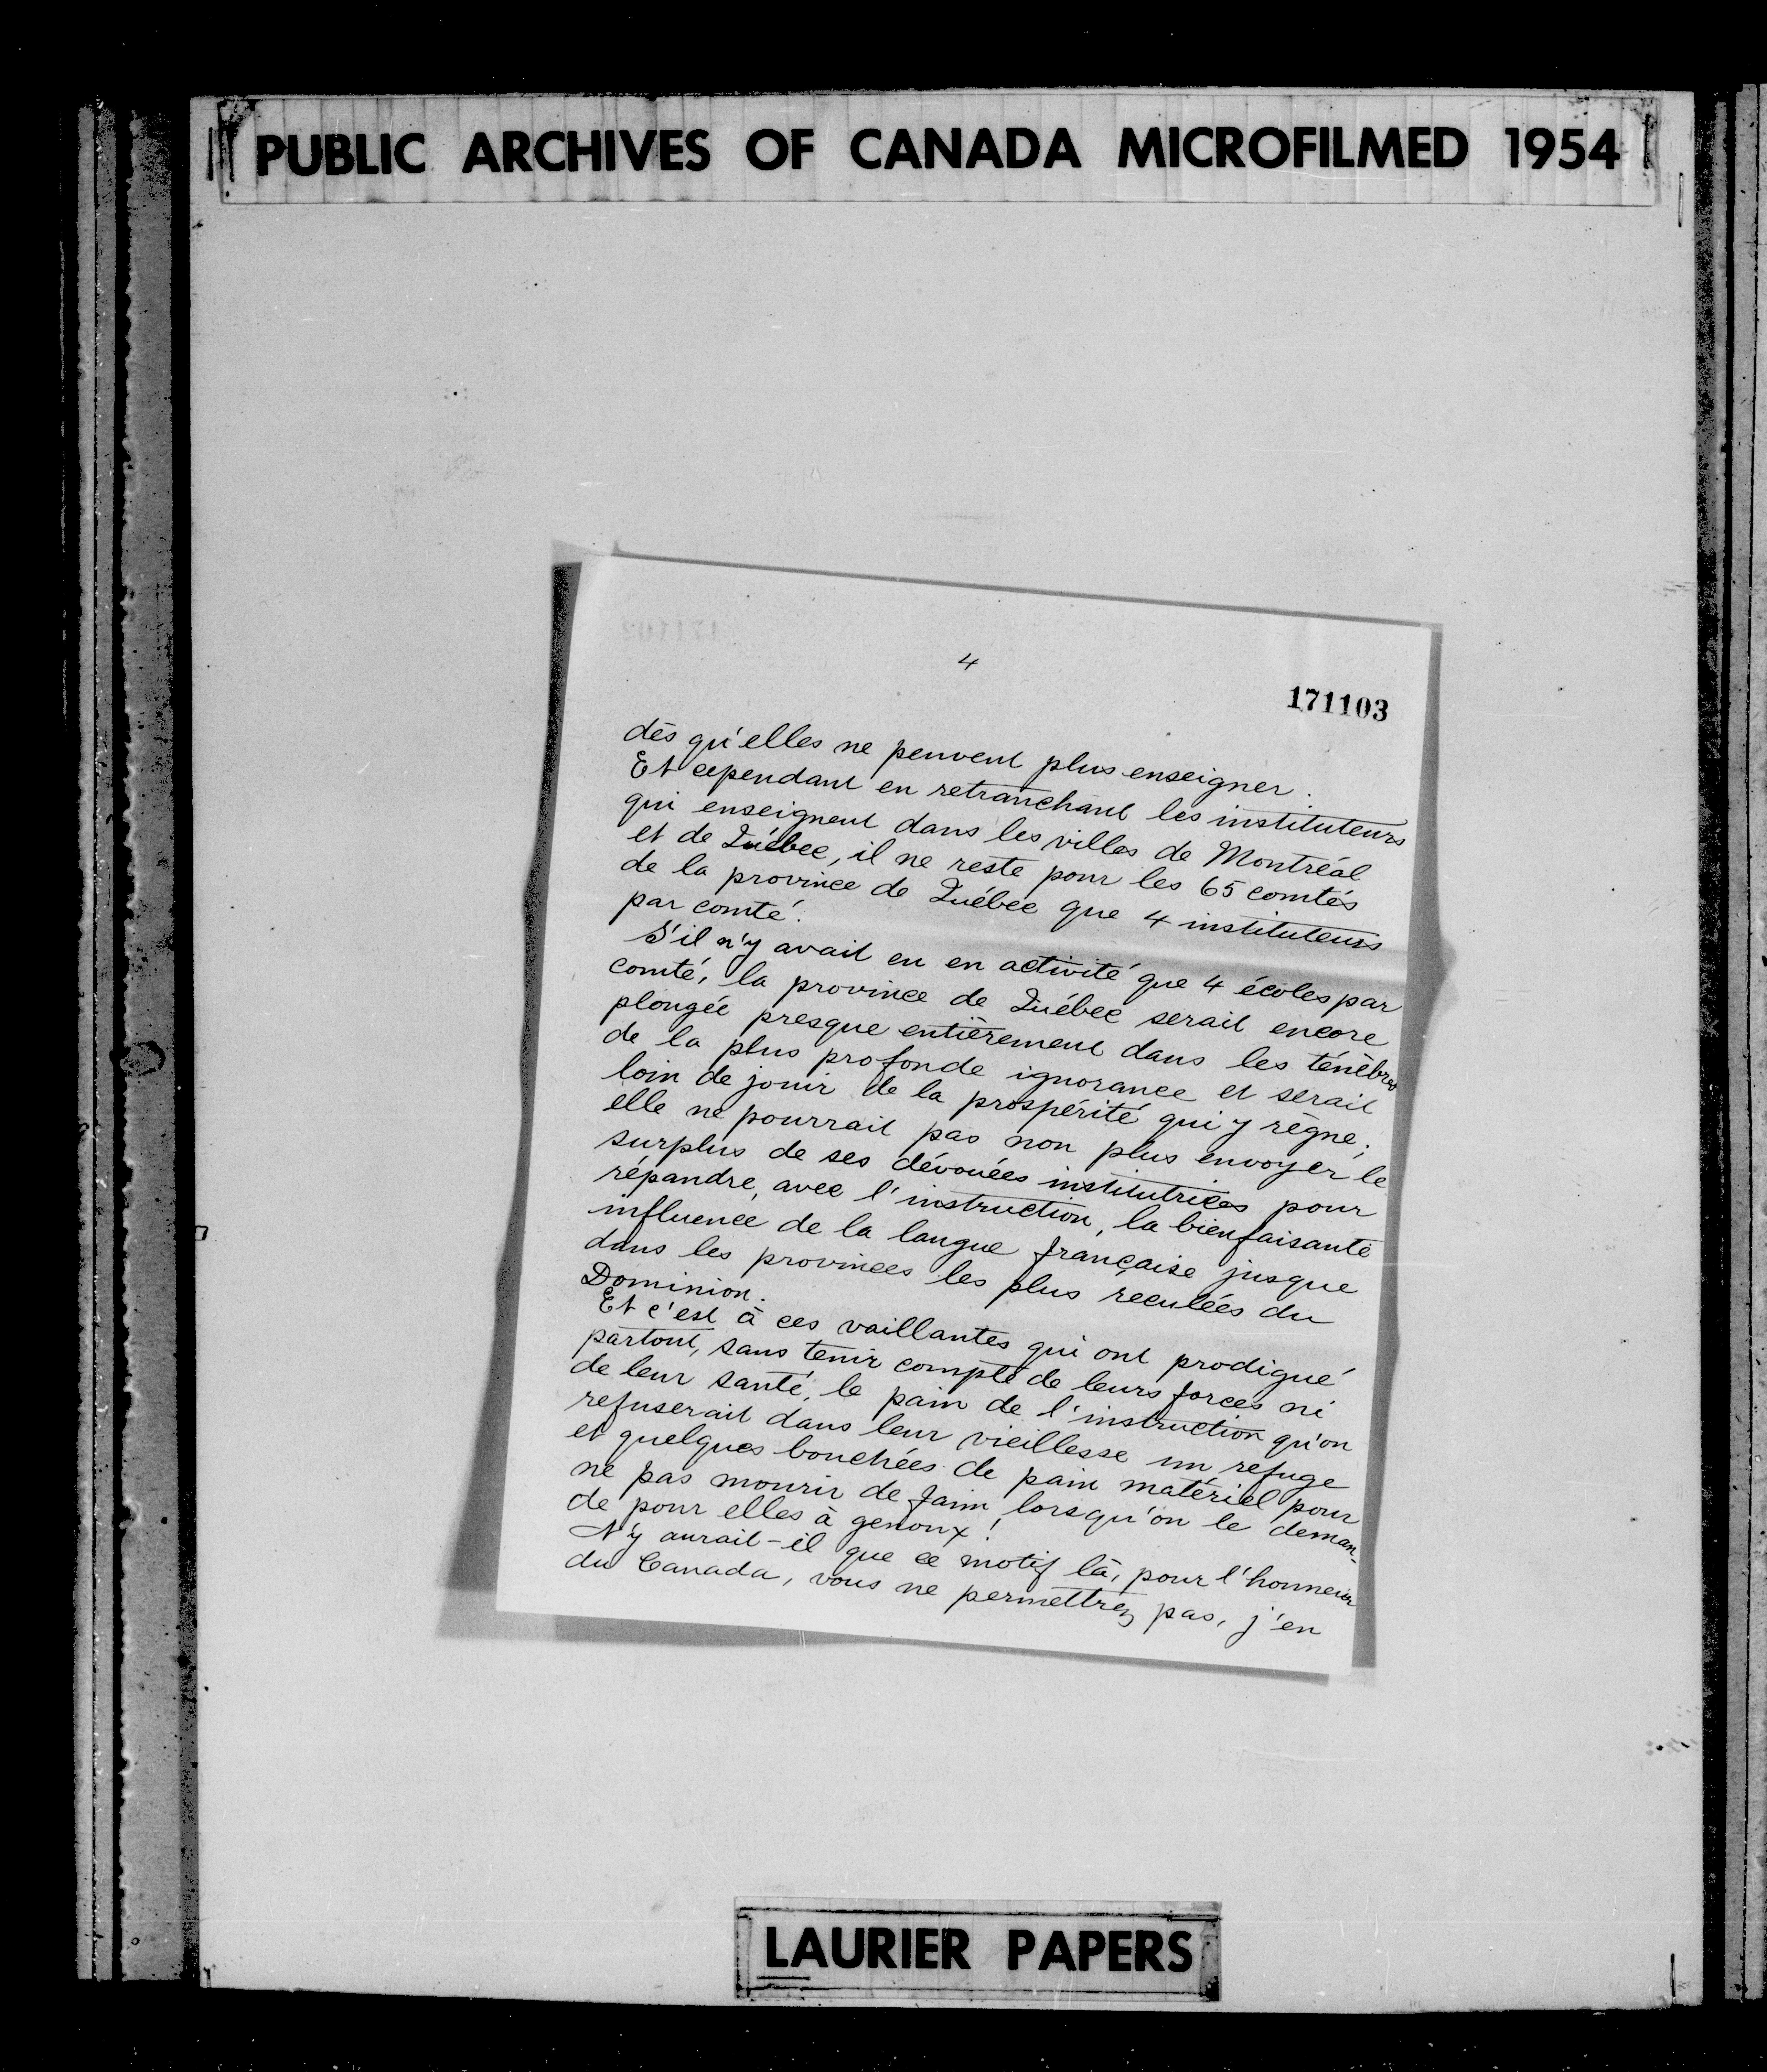 PUBLIC ARCHIVES OF CANADA MICROFILMED 1954
4
171103
dès qu'elles ne peuvent plus enseigner.
Et cependant en retranchant les instituteurs
qui enseignent dans les villes de Montréal
et de Québec, il ne reste pour les 65 comtés
de la province de Québec que 4 instituteurs
par comté.
S'il n'y avait eu en activité que 4 écoles par
comté, la province de Québec serait encore
plongée presque entièrement dans les ténèbres
de la plus profonde ignorance et serait
loin de jouir de la prospérité qui y règne;
elle ne pourrait pas non plus envoyer le
surplus de ses dévouées institutrices pour
répandre, avec l'instruction, la bienfaisante
influence de la langue française jusque
dans les provinces les plus reculées du
Dominion.
Et c'est à ces vaillantes qui ont prodigué
partout, sans tenir compte de leurs forces ni
de leur santé, le pain de l'instruction qu'on
refuserait dans leur vieillesse un refuge
et quelques bouchées de pain matériel pour
ne pas mourir de faim lorsqu'on le deman-
de pour elles à genoux!
N'y aurait-il que ce motif là, pour l'honneur
du Canada, vous ne permettrez pas, j'en
LAURIER PAPERS